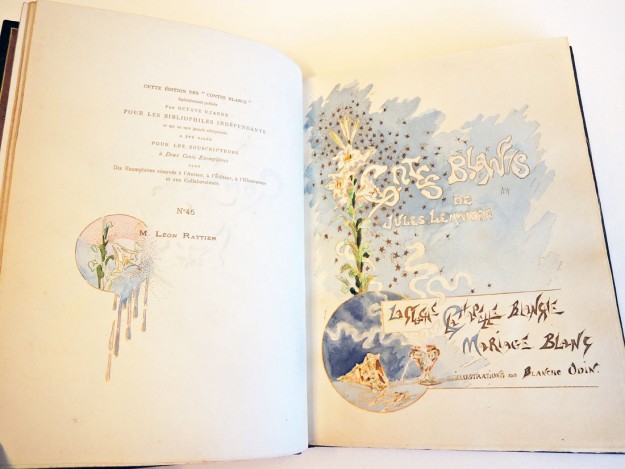 CETTE ÉDITION DES "CONTES BLANCS"
Spécialement publiée
PAR OCTAVE UZANNE
POUR LES BIBLIOPHILES INDÉPENDANTS
A ÉTÉ
POUR LES SOUSCRIPTEURS
à Deux Cents Exemplaires
Dix Exemplaires réservés à l'Auteur, à l'Éditeur, à l'Illustrateur
et aux Collaborateurs.
N° 45
M. LÉON RATTIER
CONTES BLANCS
DE
JULES LEMAITRE
LA CLOCHE LA CHAPELLE BLANCHE
MARIAGE BLANC
ILLUSTRATIONS DE BLANCHE ODIN.